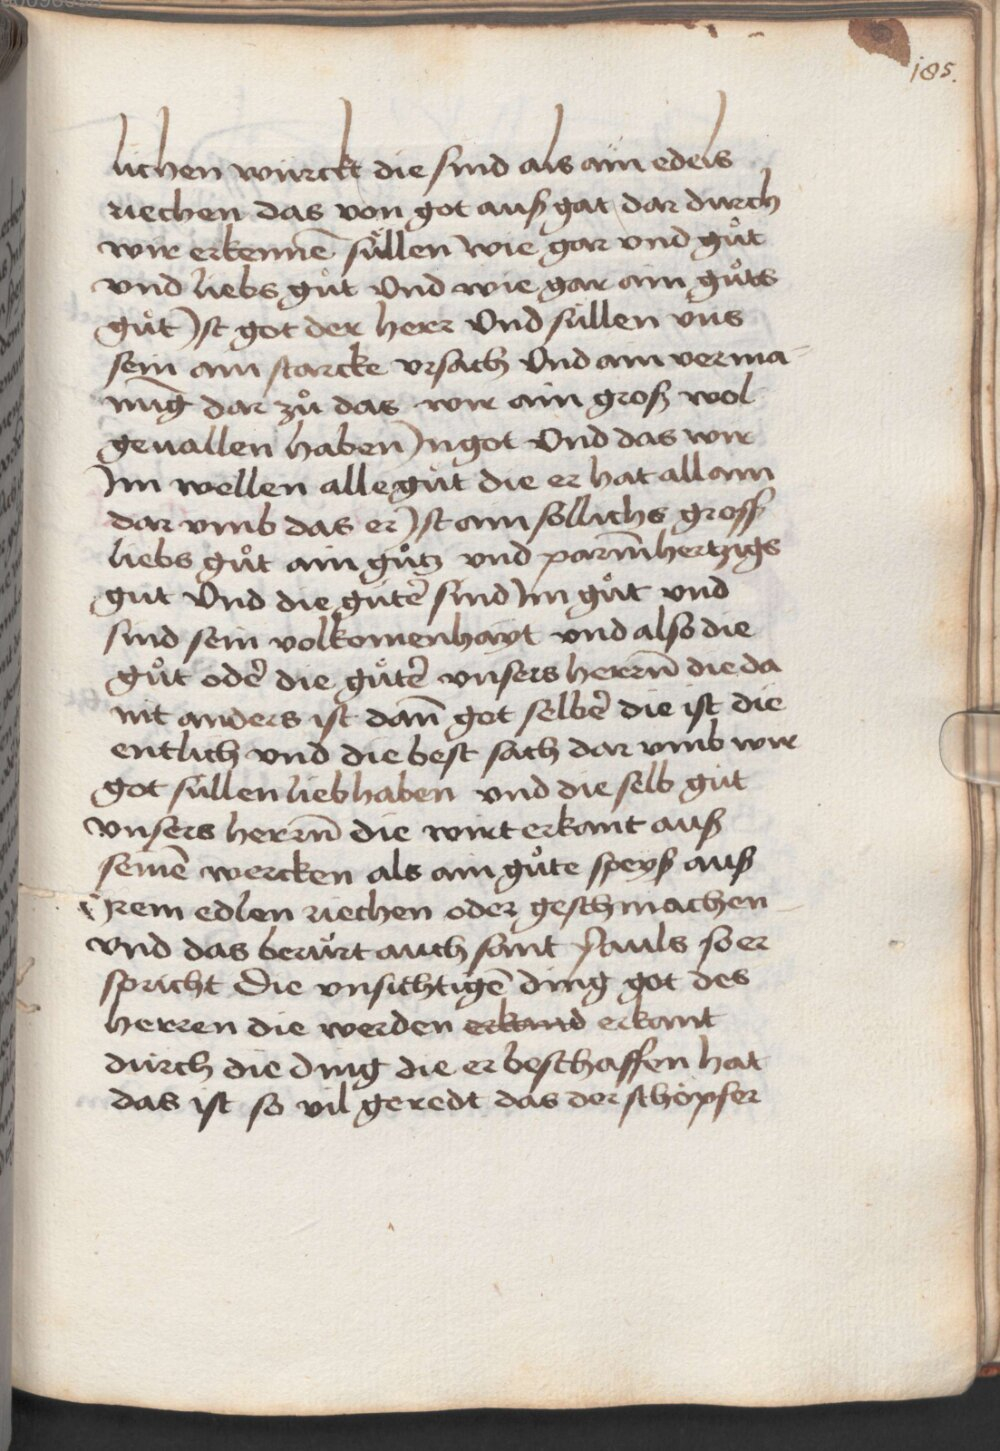 185.
lichen würckt die sind als ain edels
riechen das von got auß gat dar durch
wir erkennē süllen wie gar vnd gůt
vnd liebs gůt Vnd wie gar ain gůts
gůt Jst got der herr Vnd süllen vns
sein ain starcke vrsach Vnd ain verma-
nūg dar zů das wir ain groß wol
geuallen haben Jn got Vnd das wir
Jm wellen alle gůt die er hat allain
dar vmb das er Jst ain söllichs gross
liebs gůt ain gůtz vnd parm̄hertzigs
gut Vnd die gütē sind Jm gůt vnd
sind sein volkomenhayt vnd also die
gůt odē die gůtē vnsers herrn̄ die da
nit anders ist dan̄ got selbē die ist die
entlich vnd die best sach dar vmb wir
got süllen liebhaben vnd die selb güt
vnsers herrn̄ die wirt erkant auß
seinē wercken als ain gůte speyß auß
Jrem edlen riechen oder geschmachen
vnd das berürt auch sant Pauls so er
spricht Die vnsichtigē ding got des
herren die werden erkand erkant
durch die ding die er beschaffen hat
das ist so vil geredt das der schöpfer